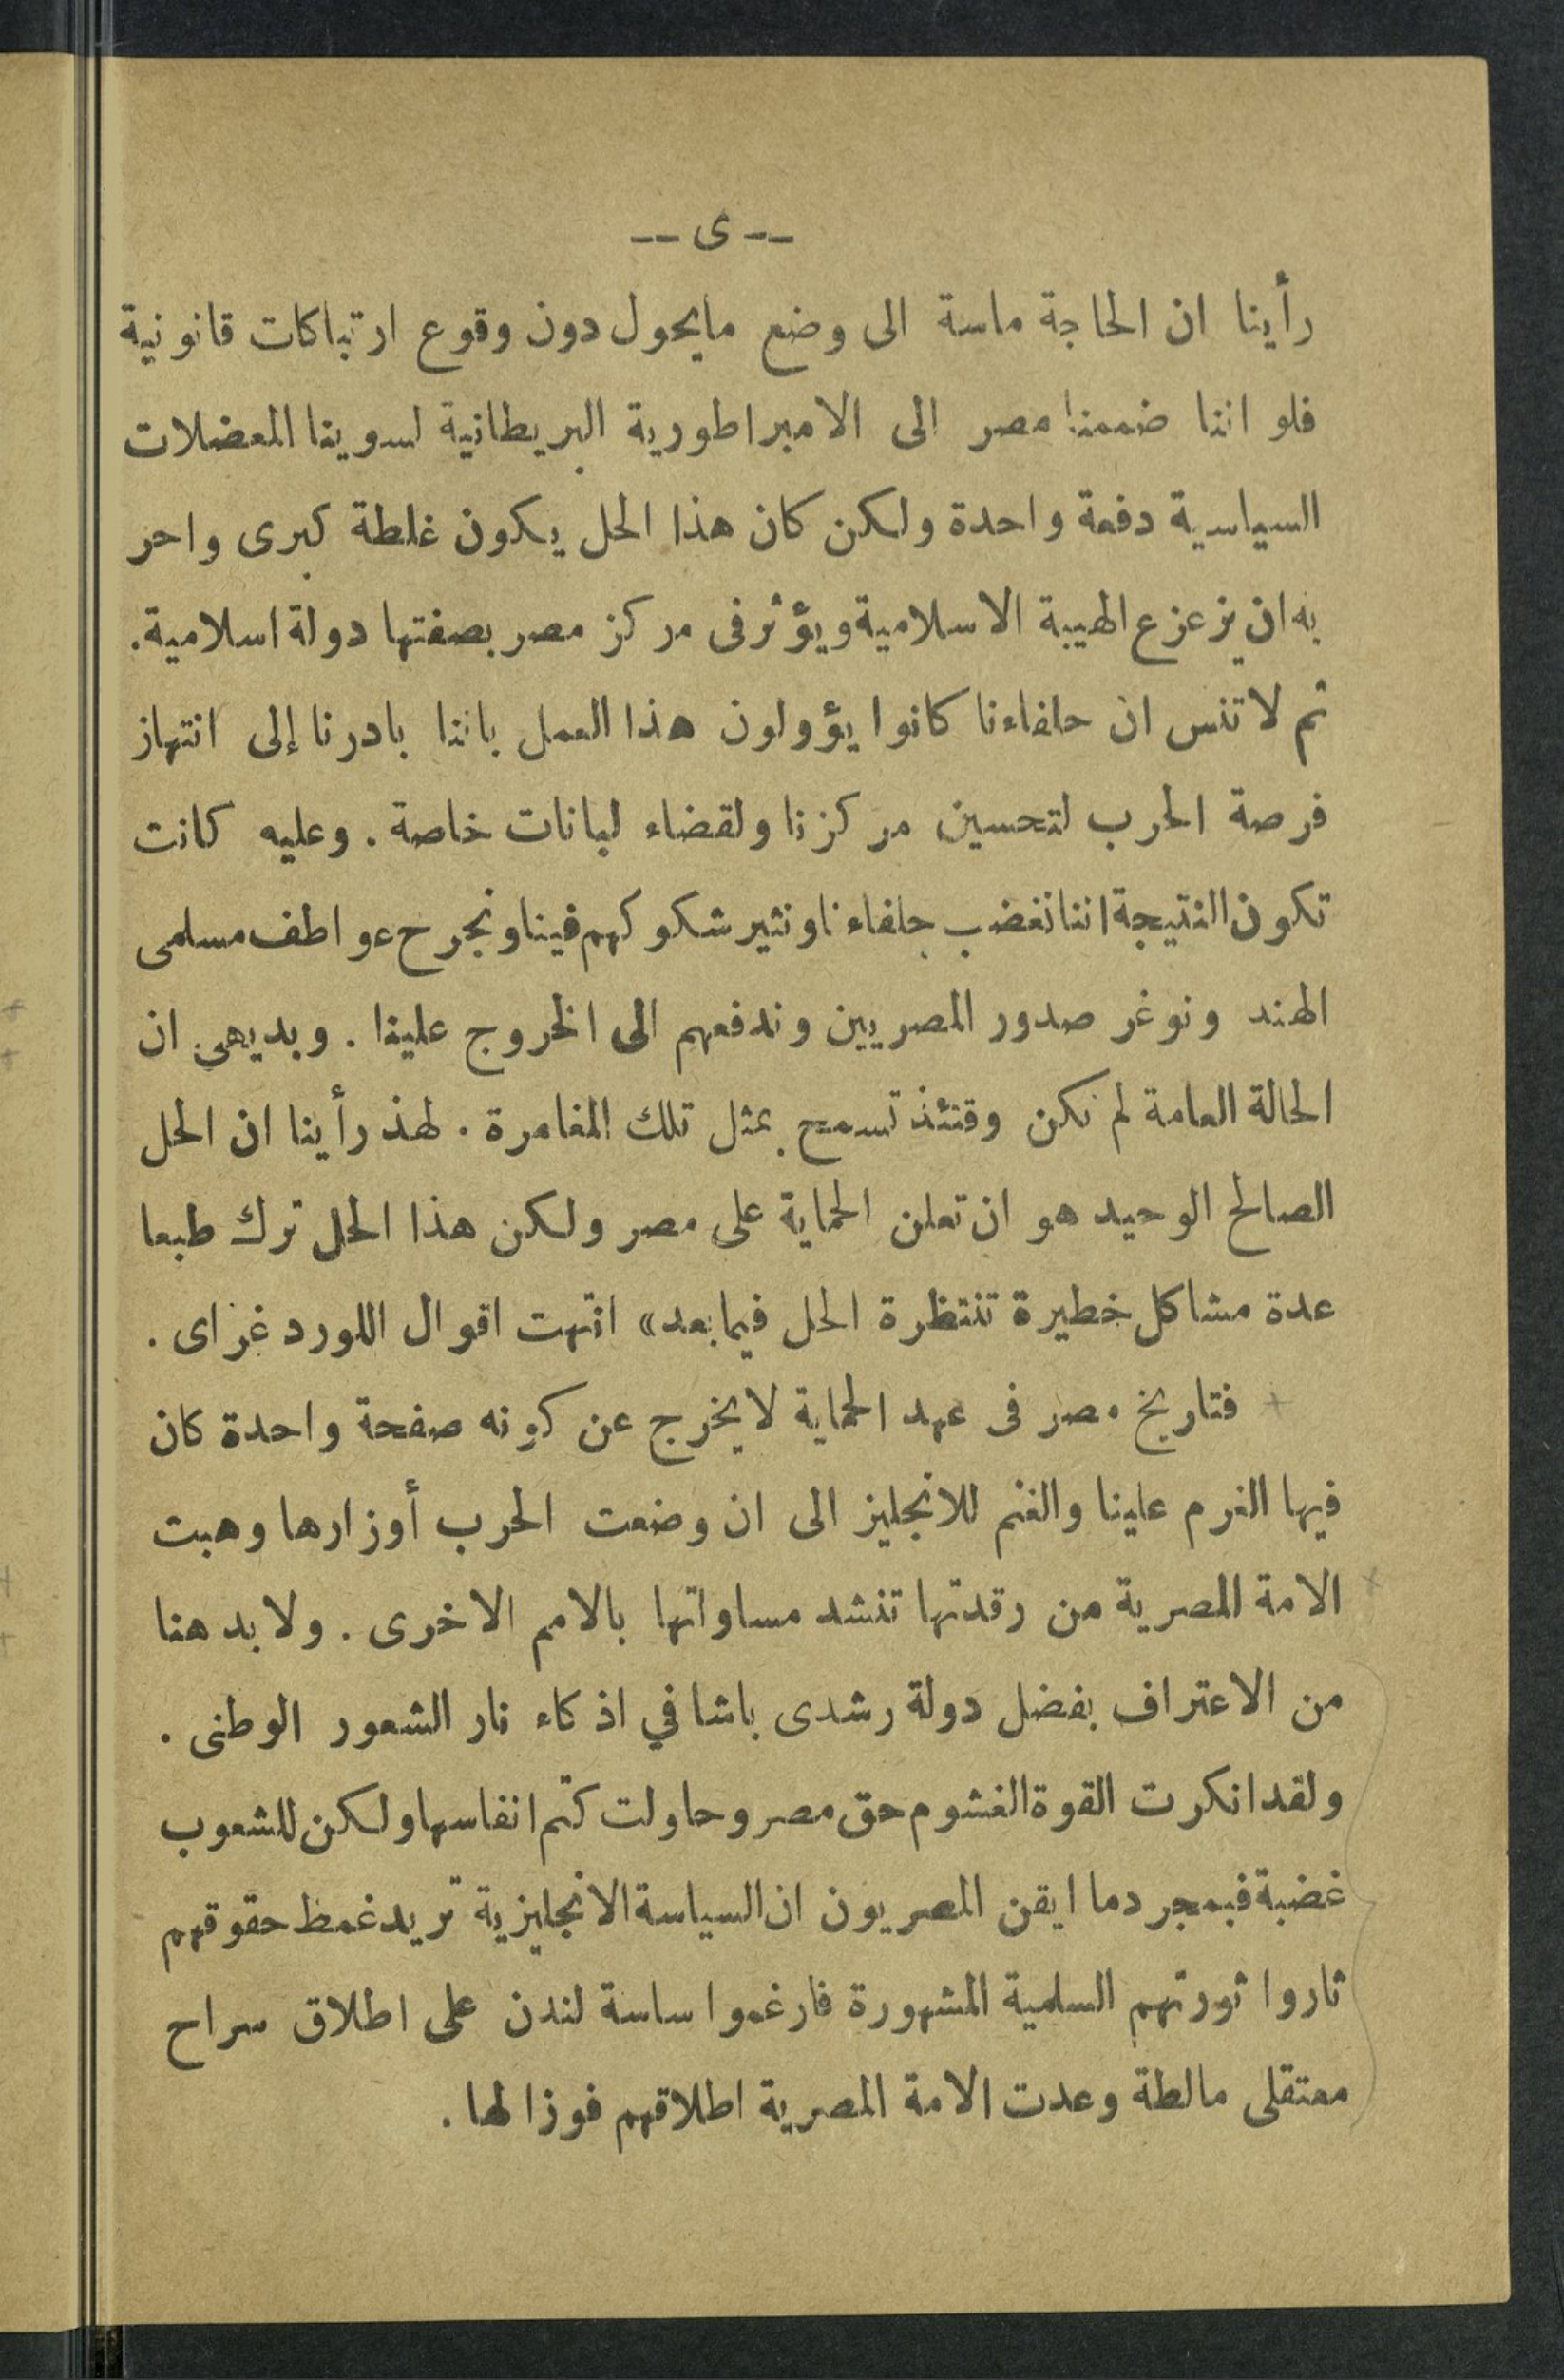 -- ى --
رأينا ان الحاجة ماسة الى وضع مايحول دون وقوع ارتباكات قانونية
فلو اننا ضممنا مصر الى الامبراطورية البريطانية لسوينا المعضلات
السياسية دفعة واحدة ولكن كان هذا الحل يكون غلطة كبرى واحر
به ان يزعزع الهيبة الاسلامية ويؤثر فى مركز مصر بصفتها دولة اسلامية.
ثم لا تنس ان حلفاءنا كانوا يؤولون هذا العمل باننا بادرنا إلى انتهاز
فرصة الحرب لتحسين مركزنا ولقضاء لبانات خاصة . وعليه كانت
تكون النتيجة اننا نغضب حلفاءنا ونثير شكوكهم فينا ونجرح عواطف مسلمى
الهند ونوغر صدور المصريين وندفعهم الى الخروج علينا . وبديهى ان
الحالة العامة لم تكن وقتئذ تسمح بمثل تلك المغامرة . لهذ رأينا ان الحل
الصالح الوحيد هو ان تعلن الحماية على مصر ولكن هذا الحل ترك طبعا
عدة مشاكل خطيرة تنتظرة الحل فيما بعد» انتهت اقوال اللورد غراى .
فتاريخ مصر فى عهد الحماية لا يخرج عن كونه صفحة واحدة كان
فيها الغرم علينا والغنم للانجليز الى ان وضعت الحرب أوزارها وهبت
الامة المصرية من رقدتها تنشد مساواتها بالامم الاخرى . ولا بد هنا
من الاعتراف بفضل دولة رشدى باشا في اذكاء نار الشعور الوطنى .
ولقد انكرت القوة الغشوم حق مصر وحاولت كتم انفاسها ولكن للشعوب
غضبة فبمجرد ما ايقن المصريون ان السياسة الانجليزية تريد غمط حقوقهم
ثاروا ثورتهم السلمية المشهورة فارغموا ساسة لندن على اطلاق سراح
معتقلى مالطة وعدت الامة المصرية اطلاقهم فوزا لها .